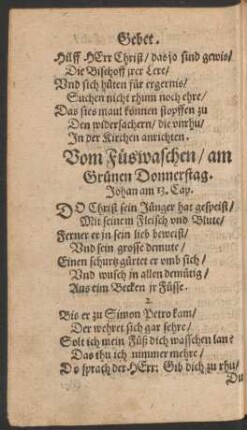 Gebet.
Hilff HErr Christ/ das jo sind gewis/
Die Bischoff jrer Lere/
Vnd sich hüten für ergernis/
Suchen nicht rhum noch ehre/
Das sies maul können stopffen zu
Den widersachern/ die vnrhu/
In der Kirchen anrichten.
Vom Füswaschen/ am
Grünen Donnerstag.
Johan am 13. Cap.
DO Christ sein Jünger hat gespeist/
Mit seinem Fleisch vnd Blute/
Ferner er jn sein lieb beweist/
Vnd sein grosse demute/
Einen schurtz gürtet er vmb sich/
Vnd wusch jn allen demütig/
Aus eim Becken jr Füsse.
2.
Bis er zu Simon Petro kam/
Der wehret sich gar sehre/
Solt ich mein Füß dich wasschen lan?
Das thu ich nimmer mehre/
Do sprach der HErr: Gib dich zu rhu/
Du